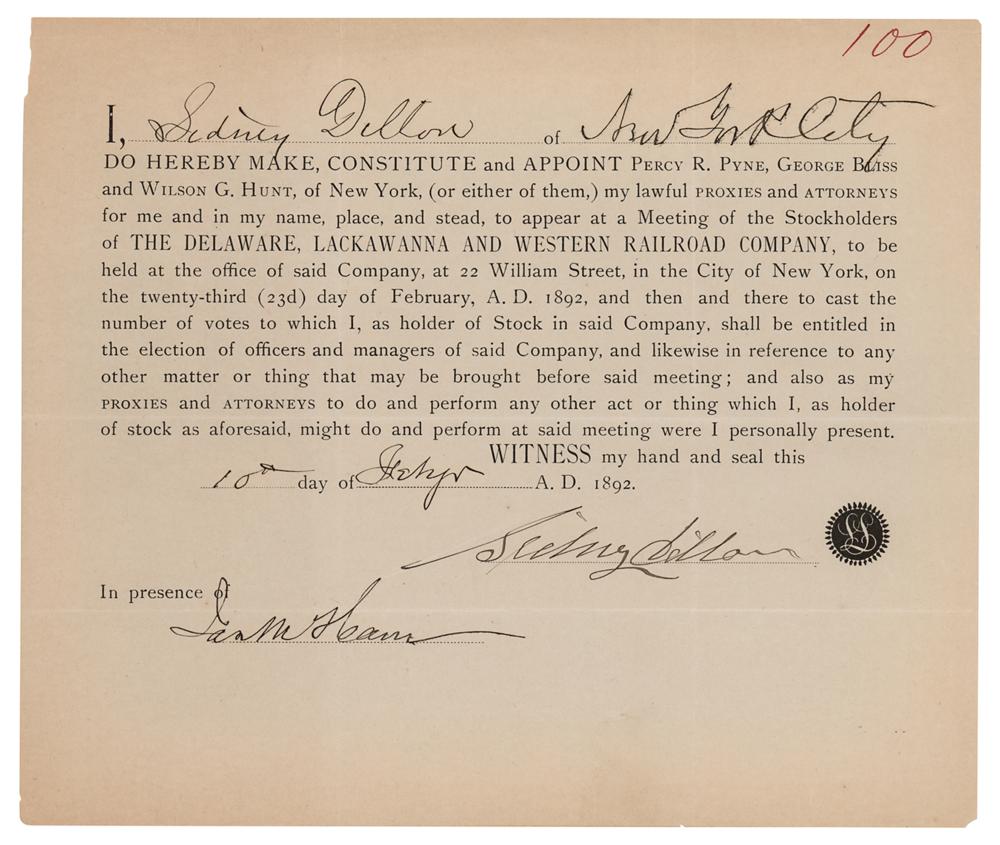 100
I, Sidney Dillon of New York City
DO HEREBY MAKE, CONSTITUTE and APPOINT PERCY R. PYNE, GEORGE BLISS
and WILSON G. HUNT, of New York, (or either of them,) my lawful PROXIES and ATTORNEYS
for me and in my name, place, and stead, to appear at a Meeting of the Stockholders
of THE DELAWARE, LACKAWANNA AND WESTERN RAILROAD COMPANY, to be
held at the office of said Company, at 22 William Street, in the City of New York, on
the twenty-third (23d) day of February, A. D. 1892, and then and there to cast the
number of votes to which I, as holder of Stock in said Company, shall be entitled in
the election of officers and managers of said Company, and likewise in reference to any
other matter or thing that may be brought before said meeting; and also as my
PROXIES and ATTORNEYS to do and perform any other act or thing which I, as holder
of stock as aforesaid, might do and perform at said meeting were I personally present.
WITNESS my hand and seal this
10th day of Feby A. D. 1892.
Sidney Dillon
LS
In presence of